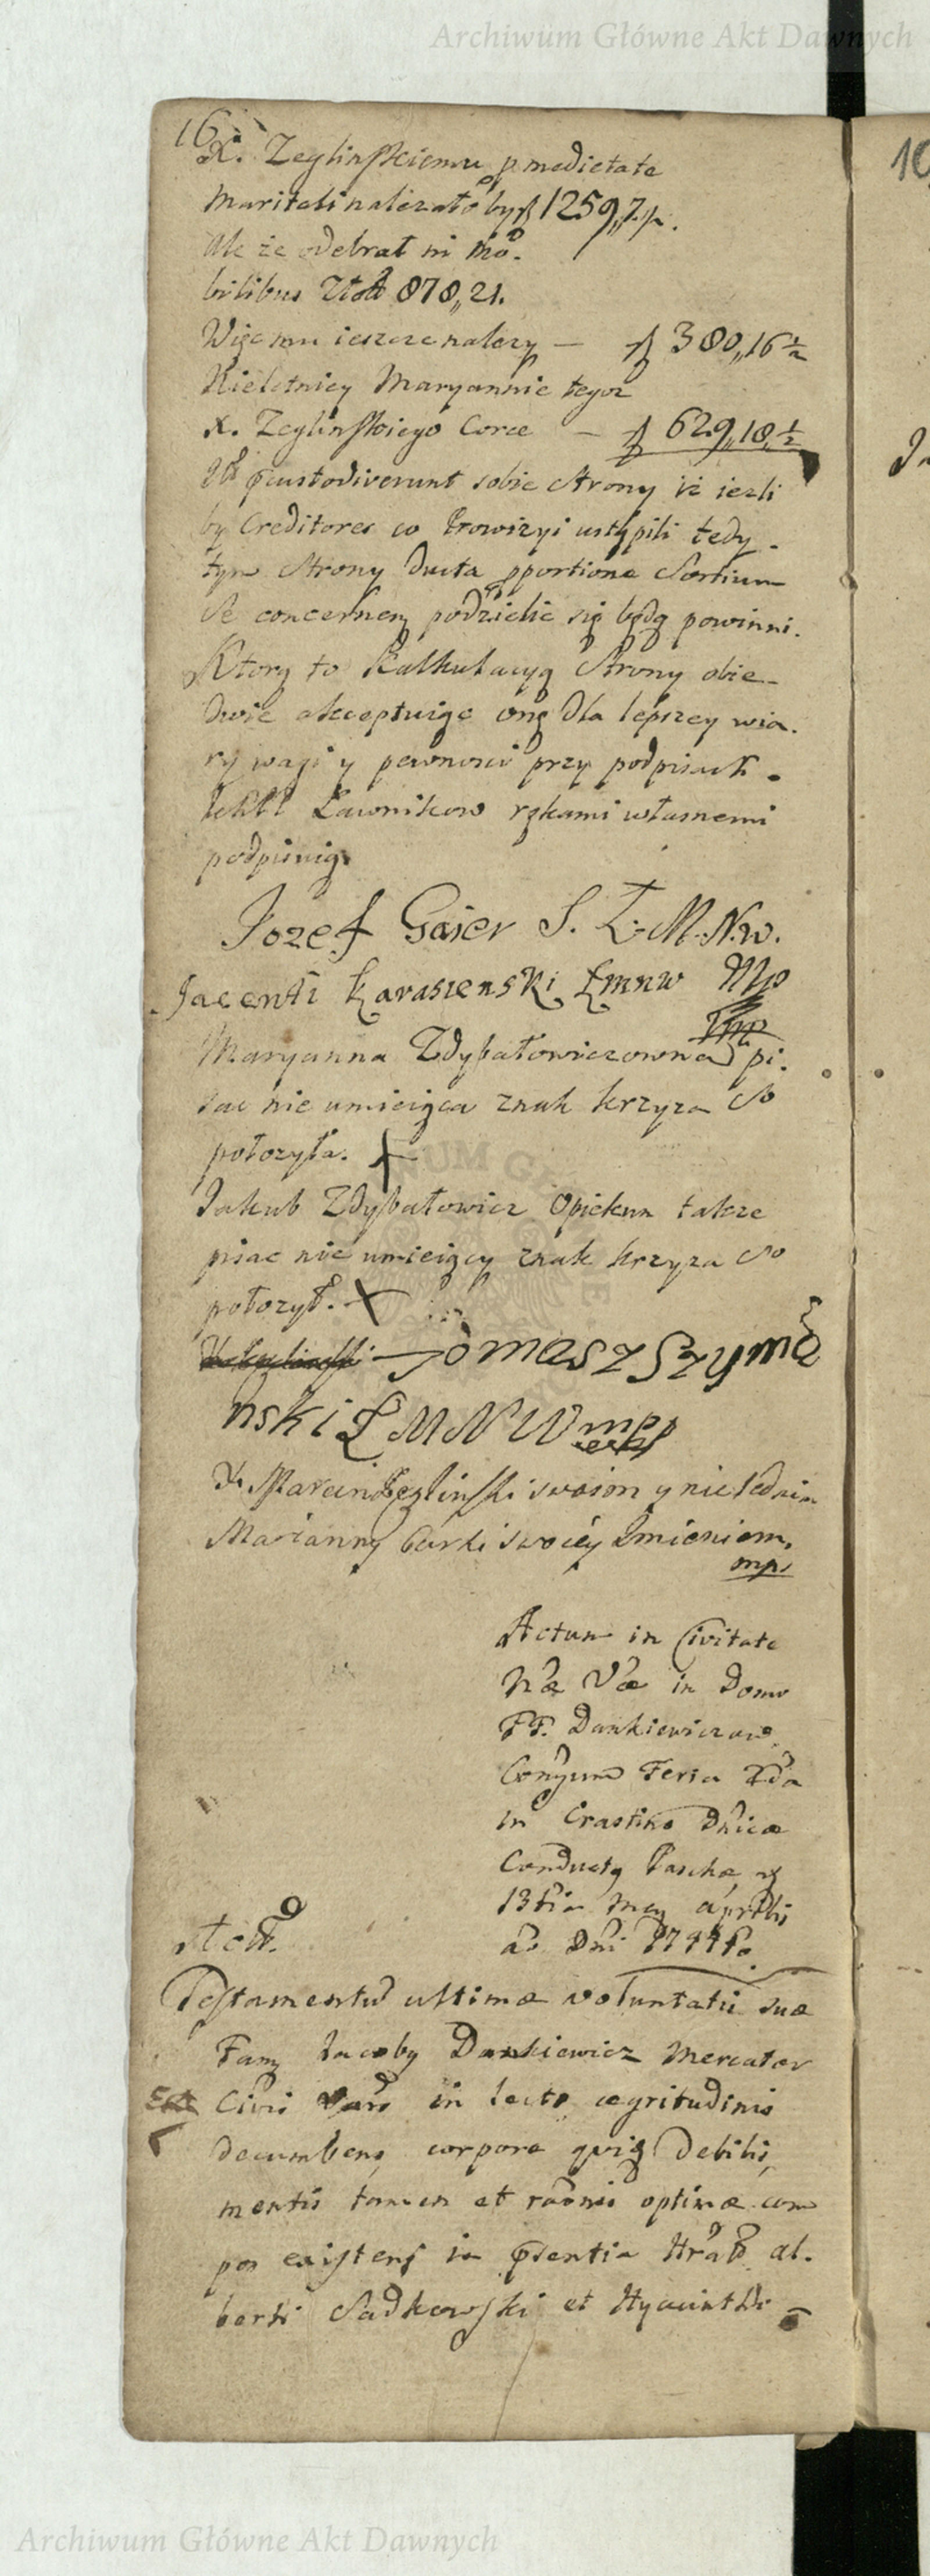 Archiwum Główne Akt Dawnych
16
X. Zeglinskiemu p. medietate
Maritali należało by f 1259,,7.
Ale że odebrał in Mo-
bilibus Złot 878,,21.
Więc mu ieszcze nalezy — f 380,,16 ½
Nieletniey Maryannie tegoz
X. Zeglinskiego Corce — f 629,,18 ½
custodiverunt sobie Strony iż iezli
by Creditores co Prowizyi ustąpili tedy
tym Strony ducta pportione Sortium
Se concernen podzielić się będą powinni.
Ktorą to Kalkulacyą Strony obie-
dwie akceptuiąc onę dla lepszey wia-
ry wagi y pewnosci przy podpisach
Ławnikow rękami własnemi
podpisuią
Jozef Gaier S. Ł. M. N. W.
Jacenti Karasienski Łmnw Mp
Maryanna Zdybałowiczowna pi-
sac nie umieiąca znak krzyza S°
położyła. +
Jakub Zdybałowicz Opiekun takze
pisac nie umieiący znak krzyza S°
położył. X
Tomasz Szyma
nski Ł M N W mp
X. Marcin Zegliński swoim y nieletnin
Marianny Curki swoiey Imieniem.
mp
Actum in Civitate
Nã Vã in Domo
FF. Dankiewiczow
Conjgum Feria 2da
in Crastino Dnicæ
Conductg Paschæ
13tia Mens Aprilis
Ao Dni 1744to.
Testamentũ ultimæ voluntatis suæ
Famg Jacobg Dankiewicz Mercator
Civis Vars in lecto ægritudinis
decumbens corpore qvig debilis,
mentis tamen et raonis optimæ com
pos existens in pñentia Hrab. Al-
berti Sadkowski et Hyacinthi
10
Archiwum Główne Akt Dawnych